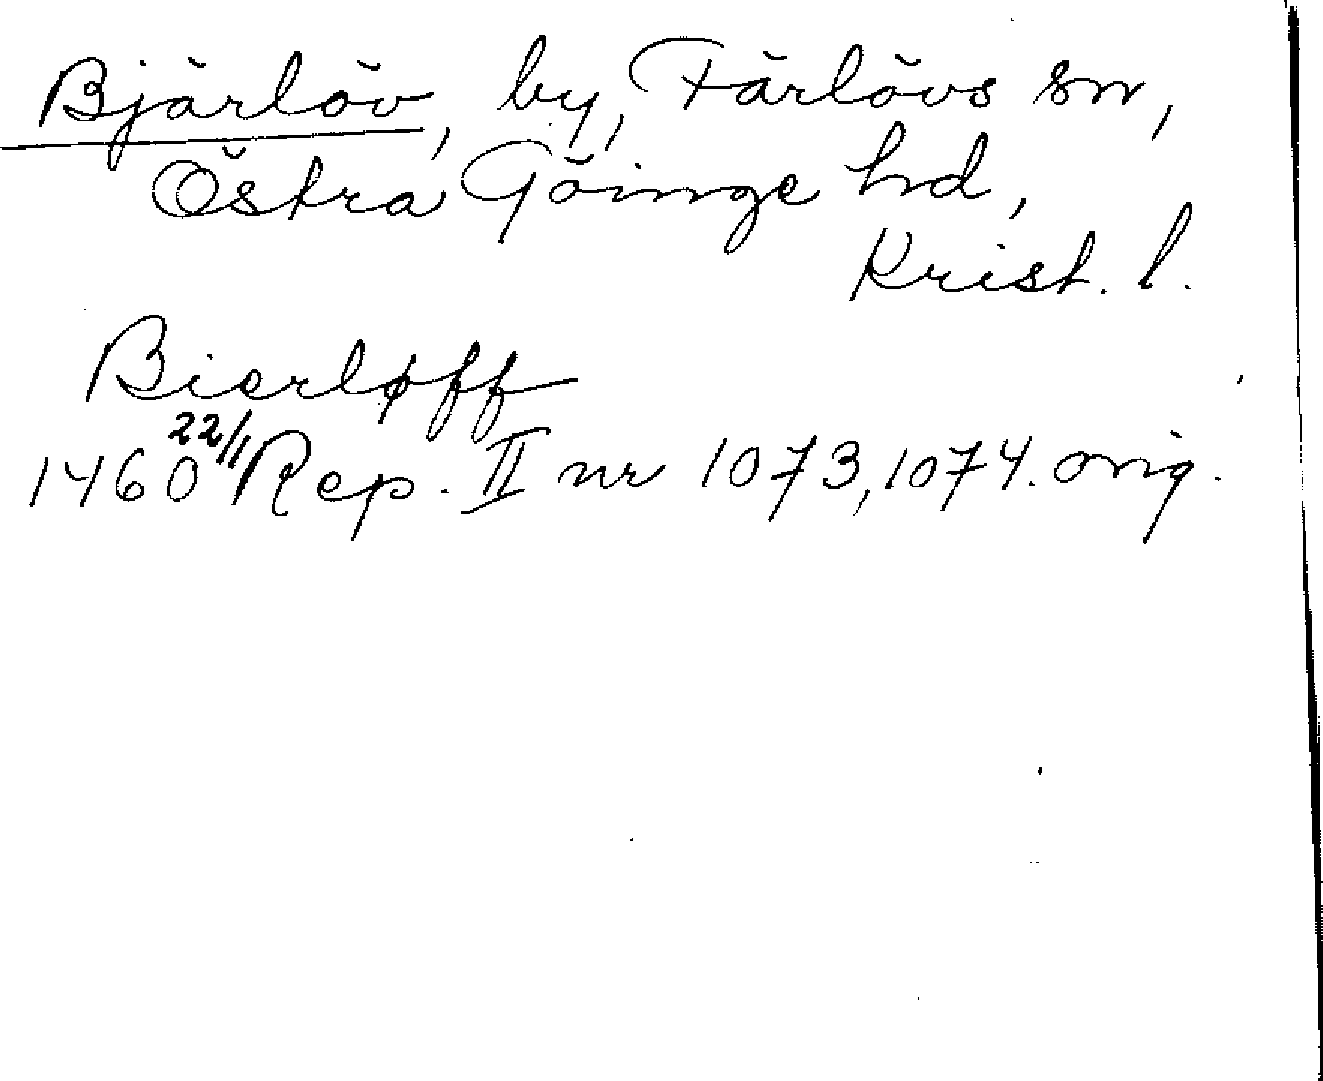 Bjärlöv, by, Färlövs sn,
Östra Göinge hd,
Krist. l.
Bierløff
1460 22/1 Rep. II nr 1073, 1074. orig.